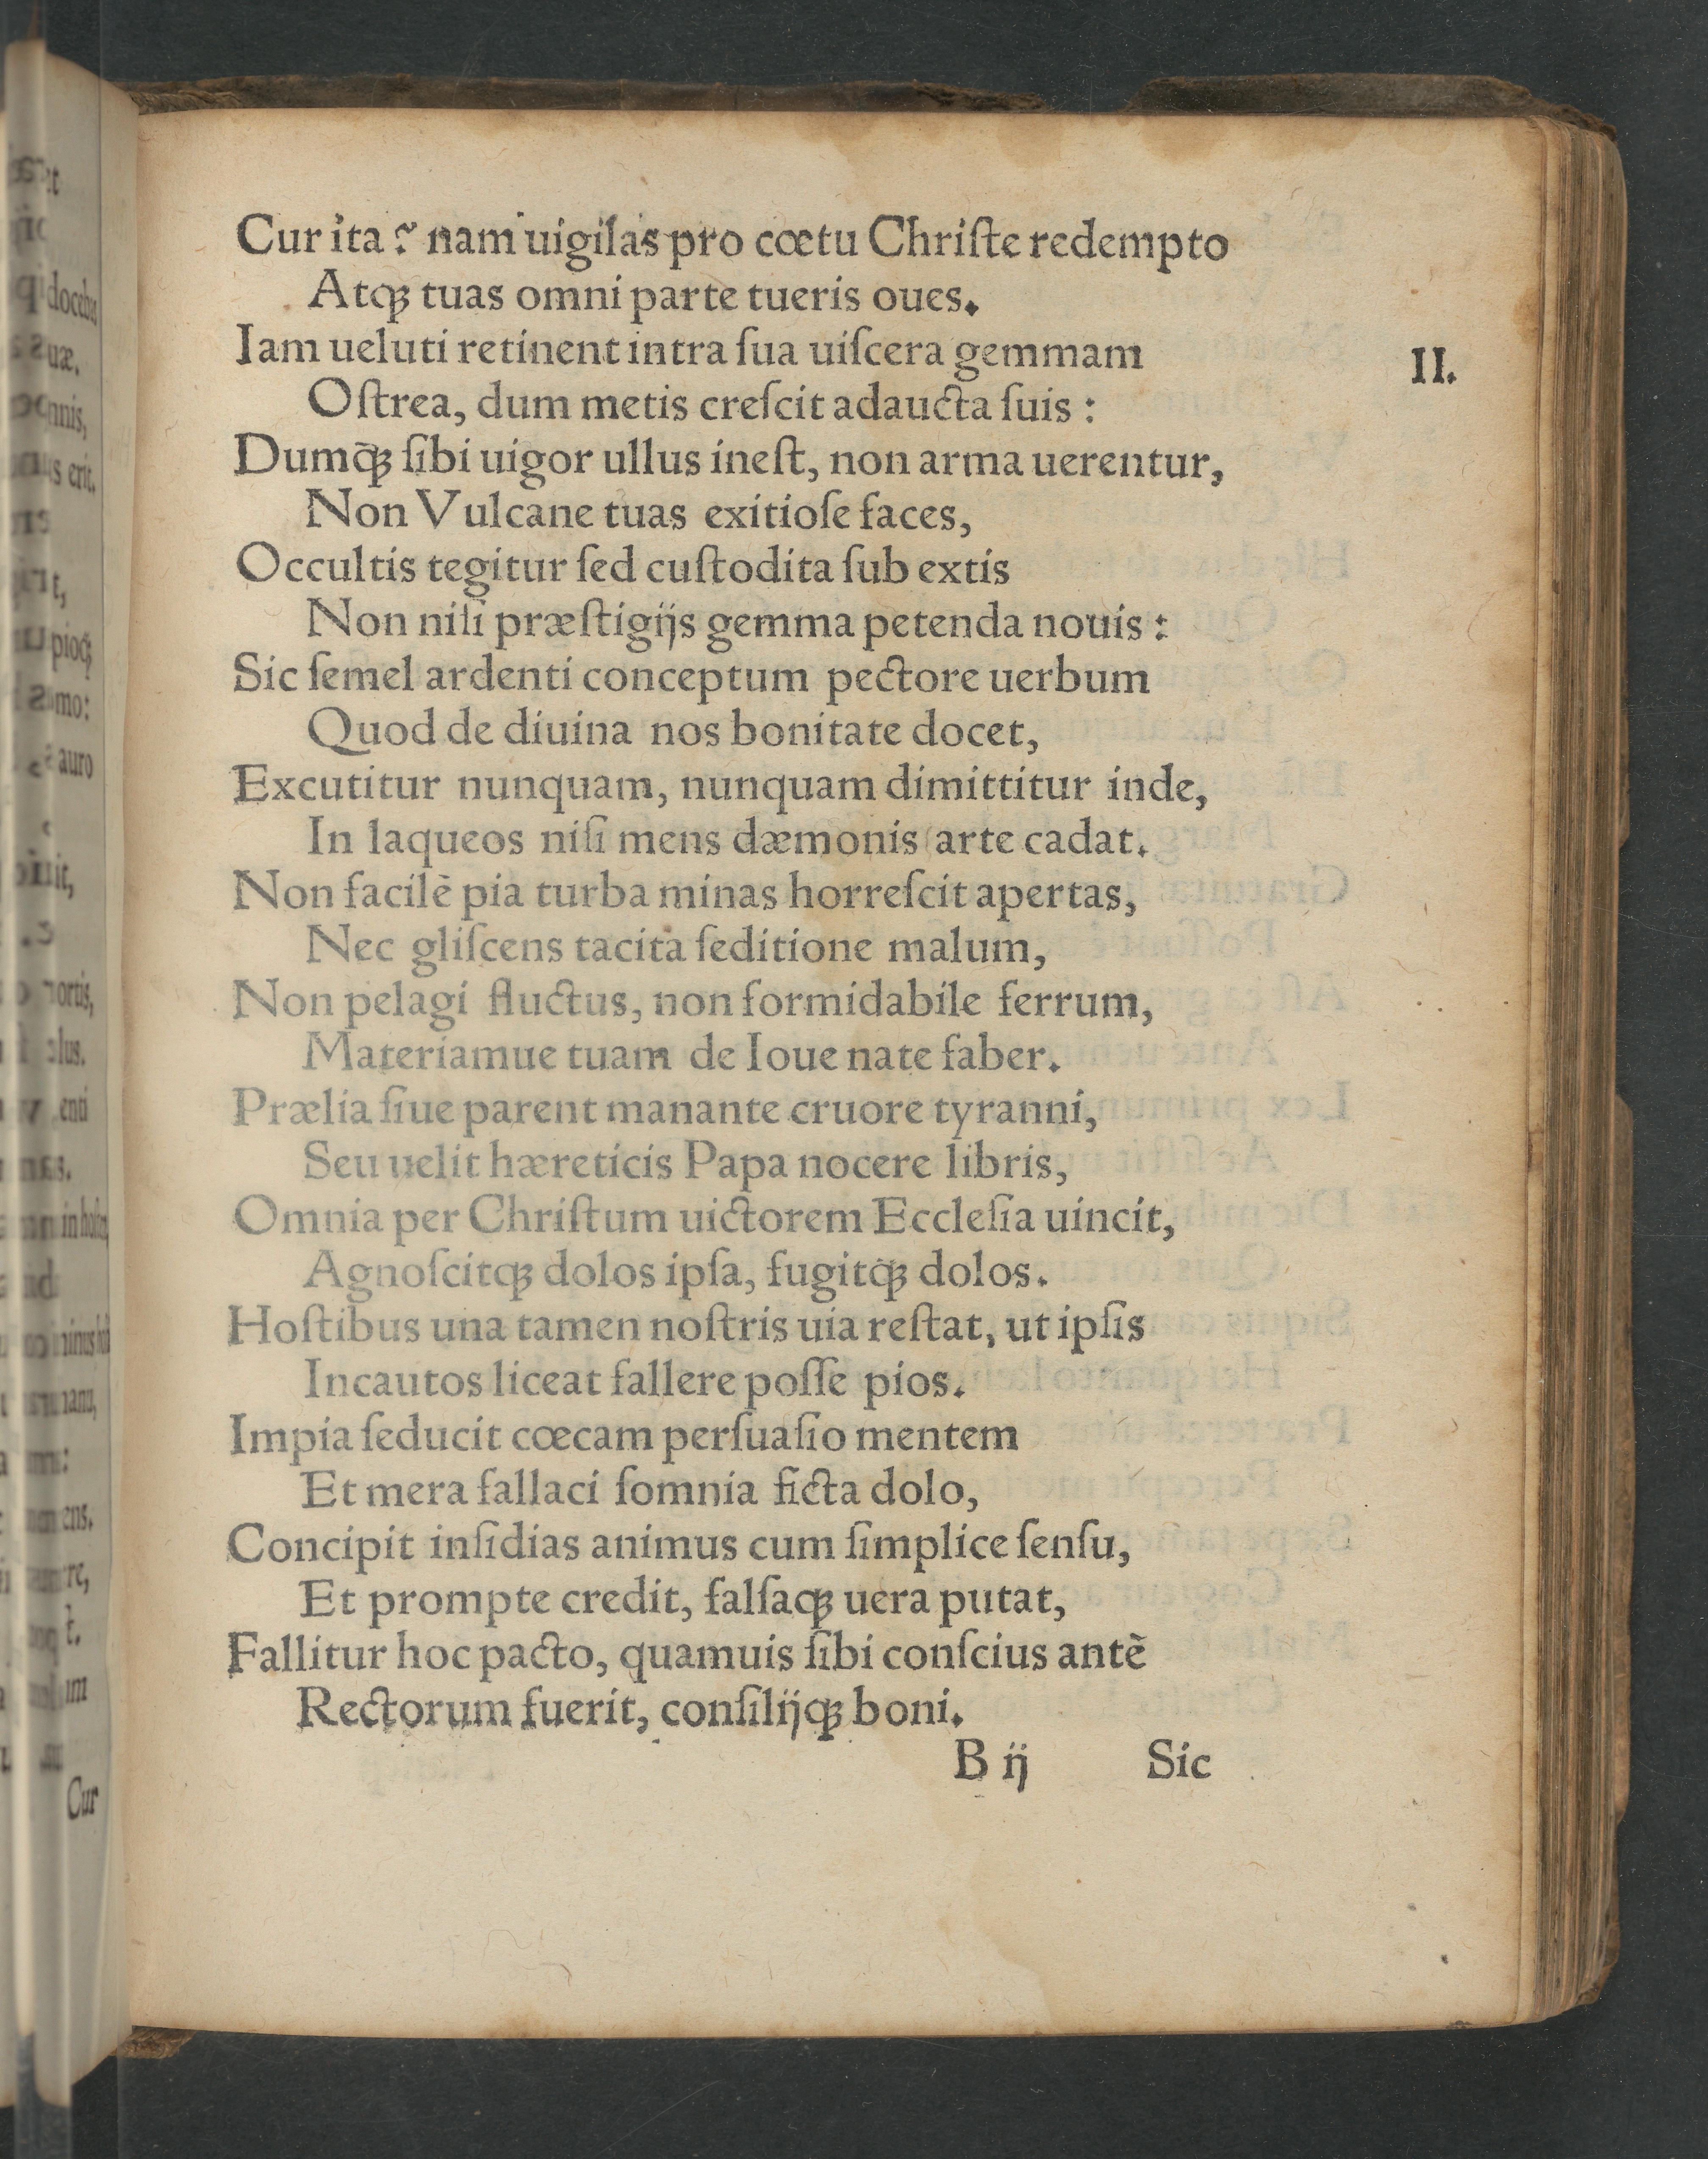 Cur ita? nam uigilas pro cœtu Chriſte redempto
Atqꝫ tuas omni parte tueris oues.
Iam ueluti retinent intra ſua uiſcera gemmam
II.
Oſtrea, dum metis creſcit adaucta ſuis:
Dumq̃ꝫ ſibi uigor ullus ineſt, non arma uerentur,
Non Vulcane tuas exitioſe faces,
Occultis tegitur ſed cuſtodita ſub extis
Non niſi præſtigijs gemma petenda nouis:
Sic ſemel ardenti conceptum pectore uerbum
Quod de diuina nos bonitate docet,
Excutitur nunquam, nunquam dimittitur inde,
In laqueos niſi mens dæmonis arte cadat.
Non facilè pia turba minas horreſcit apertas,
Nec gliſcens tacita ſeditione malum,
Non pelagi fluctus, non formidabile ferrum,
Materiamue tuam de Ioue nate faber.
Prælia ſiue parent manante cruore tyranni,
Seu uelit hæreticis Papa nocere libris,
Omnia per Chriſtum uictorem Eccleſia uincit,
Agnoſcitqꝫ dolos ipſa, fugitq̃ꝫ dolos.
Hoſtibus una tamen noſtris uia reſtat, ut ipſis
Incautos liceat fallere poſſe pios.
Impia ſeducit cœcam perſuaſio mentem
Et mera fallaci ſomnia ficta dolo,
Concipit inſidias animus cum ſimplice ſenſu,
Et prompte credit, falſaqꝫ uera putat,
Fallitur hoc pacto, quamuis ſibi conſcius antè
Rectorum fuerit, conſilijqꝫ boni.
B ij Sic